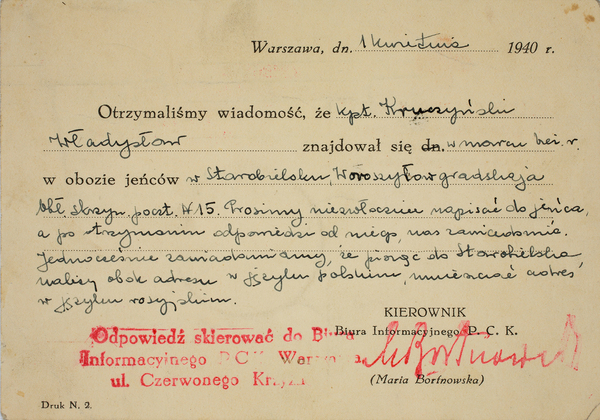 Warszawa, dn. 1 kwietnia 1940 r.
Otrzymaliśmy wiadomość, że kpt. Kruczyński
Władysław znajdował się dn. w marcu bież. r.
w obozie jeńców w Starobielsku, Woroszyłowgradskaja
obł. skrzyn. poczt. N 15. Prosimy niezwłocznie napisać do jeńca,
a po otrzymaniu odpowiedzi od niego, nas zawiadomić.
Jednocześnie zawiadamiamy, że pisząc do Starobielska
należy obok adresu w języku polskim, umieszczać adres
w języku rosyjskim.
KIEROWNIK
Biura Informacyjnego P. C. K.
M Bortnowska
(Maria Bortnowska)
Odpowiedź skierować do Biura
Informacyjnego PCK Warszawa
ul. Czerwonego Krzyża
Druk N. 2.